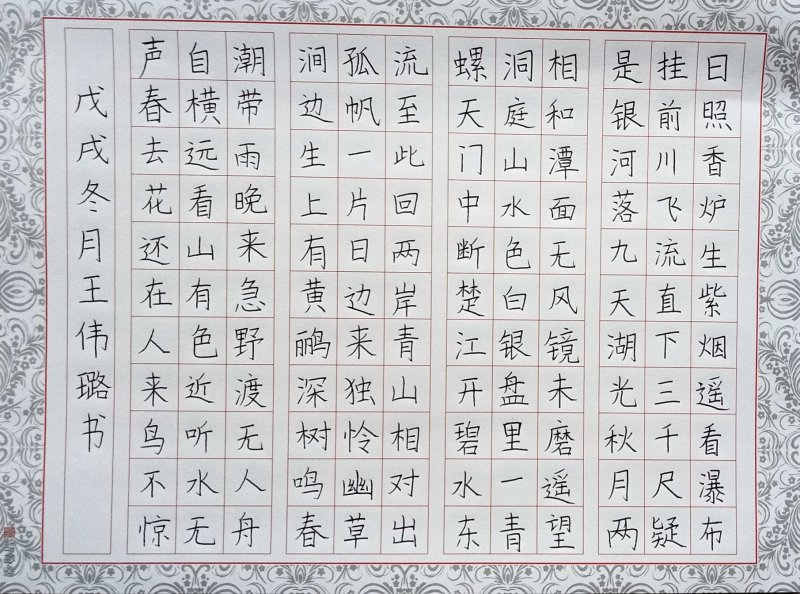 日照香炉生紫烟遥看瀑布
挂前川飞流直下三千尺疑
是银河落九天湖光秋月两
相和潭面无风镜未磨遥望
洞庭山水色白银盘里一青
螺天门中断楚江开碧水东
流至此回两岸青山相对出
孤帆一片日边来独怜幽草
涧边生上有黄鹂深树鸣春
潮带雨晚来急野渡无人舟
自横远看山有色近听水无
声春去花还在人来鸟不惊
戊戌冬月王伟璐书